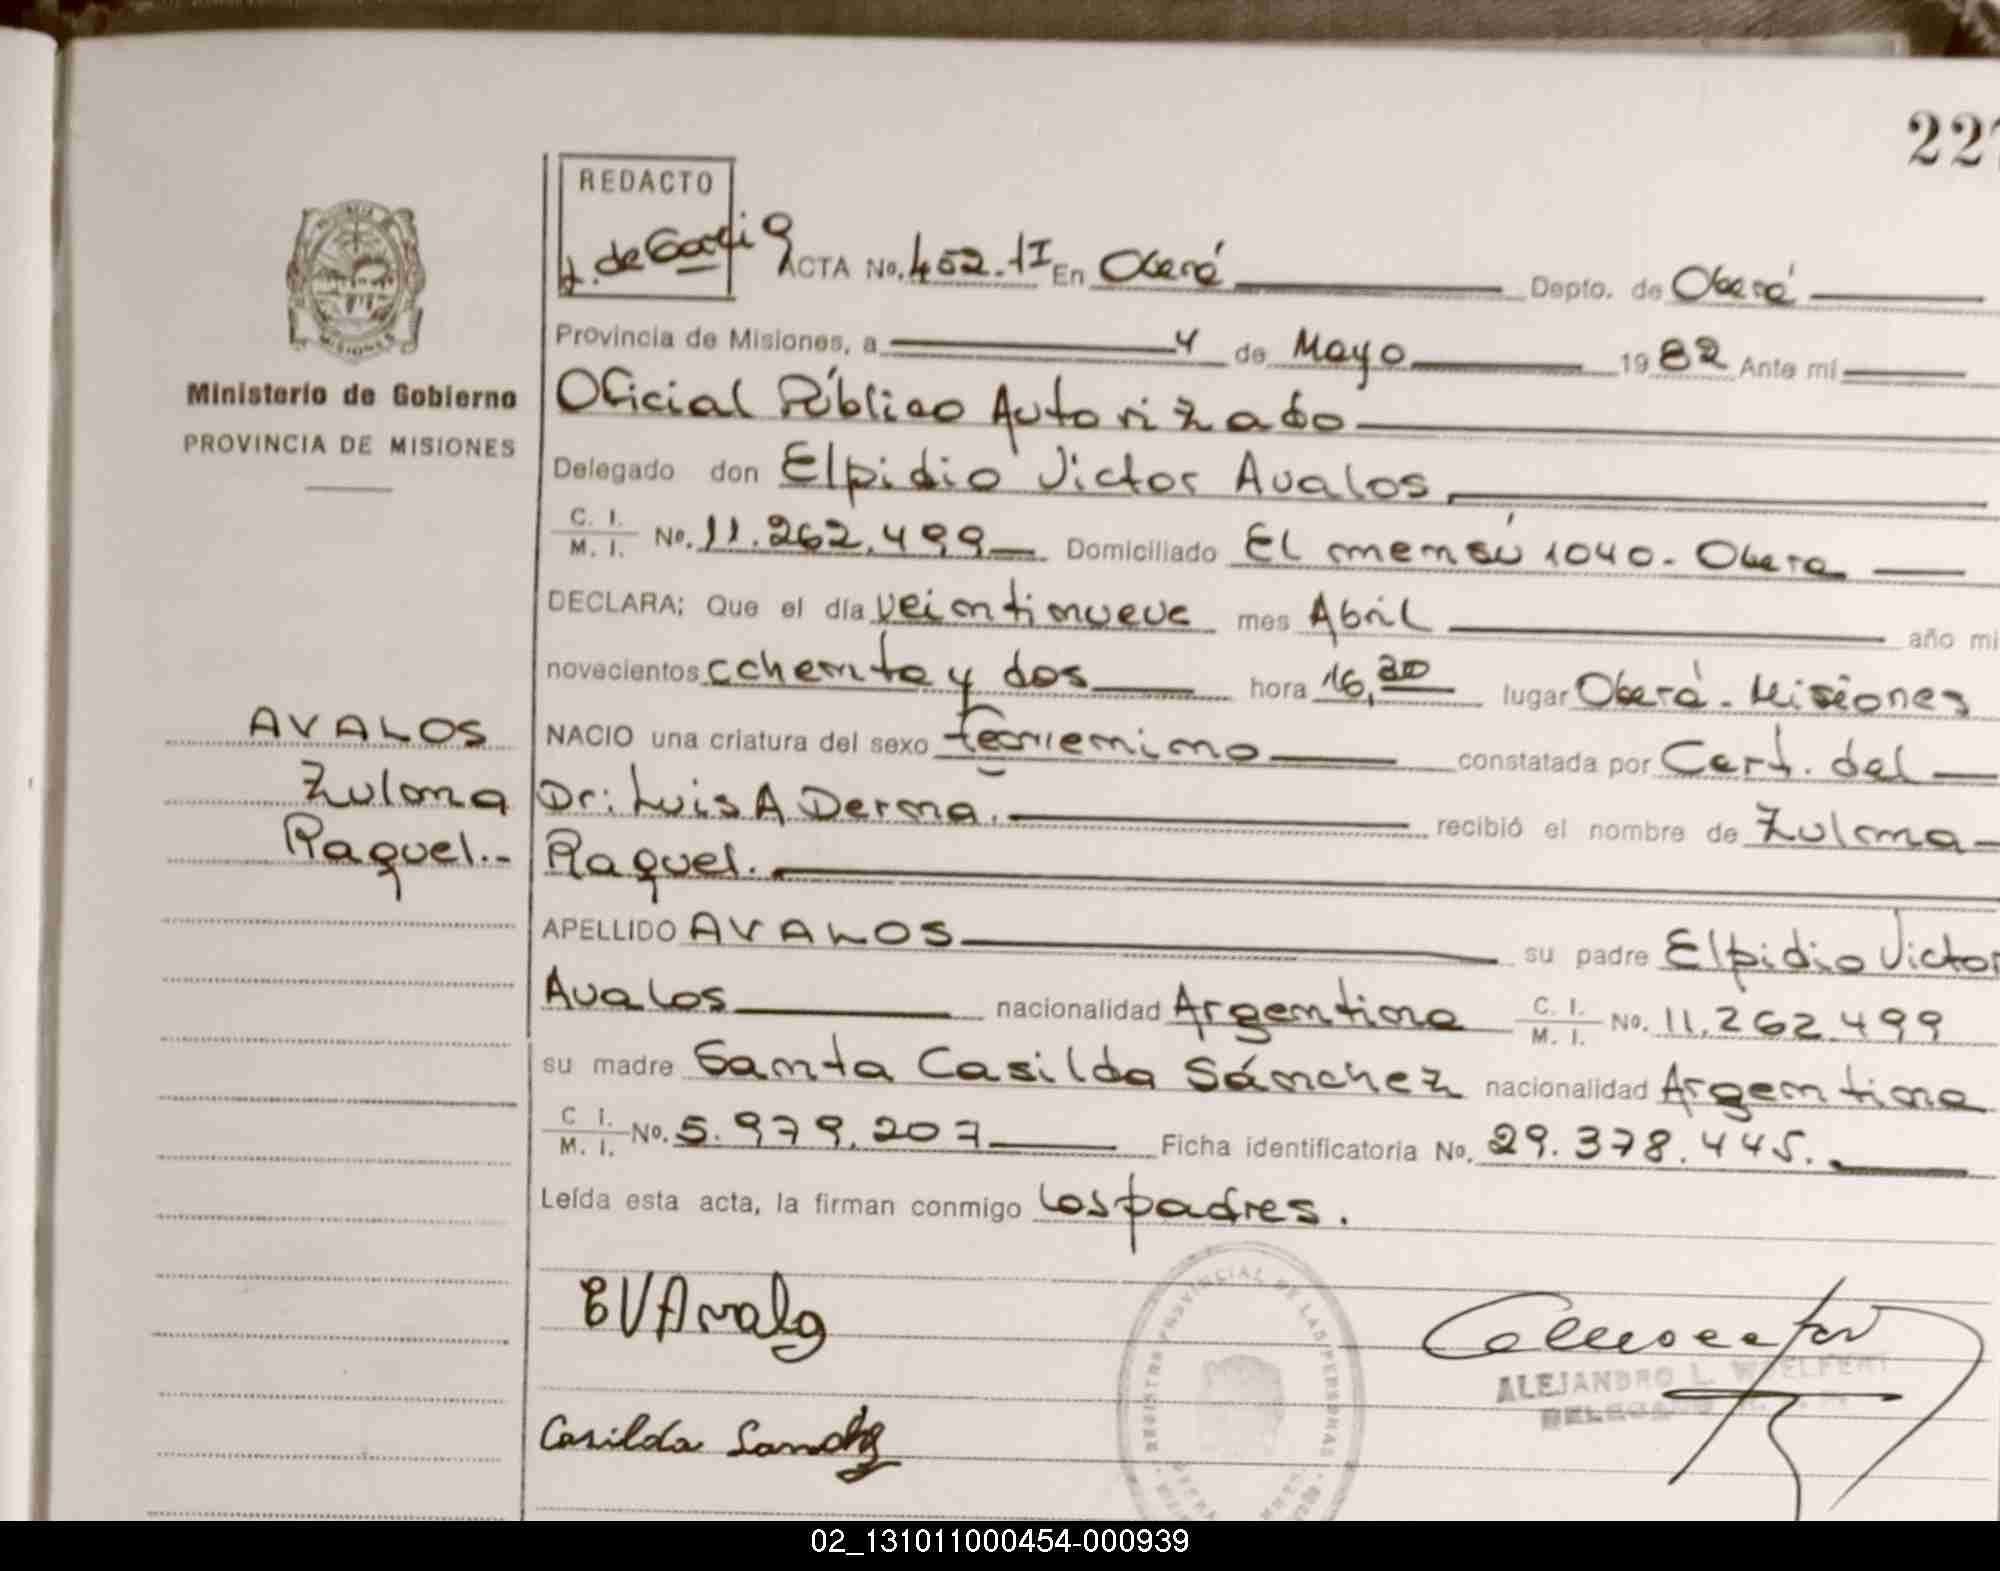 227
REDACTO
ACTA No. 452. 1I En Oberá Depto. de Oberá
Provincia de Misiones, a 4 de Mayo 1982 Ante mí
Ministerio de Gobierno
PROVINCIA DE MISIONES
Oficial Público Autorizado
Delegado don Elpidio Victor Avalos
C. I. M. I. No. 11.262.499 Domiciliado El mensú 1040. Obera
DECLARA; Que el día veintinueve mes Abril año mi
novecientos ochenta y dos hora 16,30 lugar Oberá. Misiones
AVALOS
Zulma
Raquel.-
NACIO una criatura del sexo femenino constatada por Cert. del
Dr: Luis A Derna. recibió el nombre de Zulma
Raquel.
APELLIDO AVALOS su padre Elpidio Victor
Avalos nacionalidad Argentina C. I. M. I. No. 11.262.499
su madre Santa Casilda Sánchez nacionalidad Argentina
C I. M. I. No. 5.979.207 Ficha identificatoria No. 29.378.445.
Leída esta acta, la firman conmigo los padres.
EVAvalos
REGISTRO PROVINCIAL DE LAS PERSONAS
ALEJANDRO L. WOELFERT
Casilda Sanchez
02_131011000454-000939